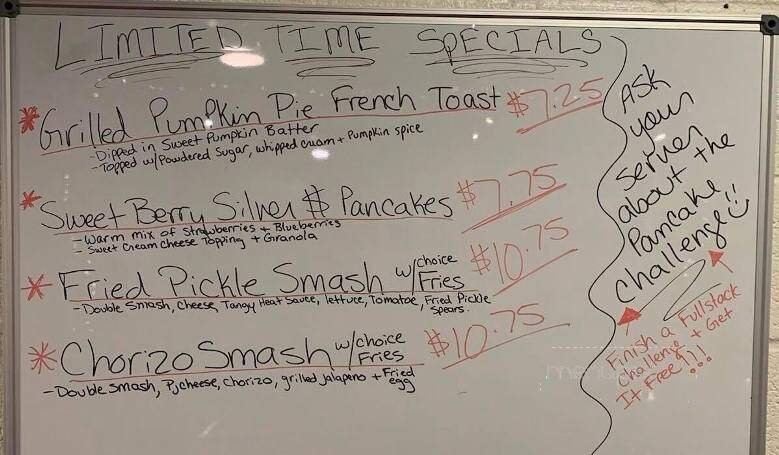 LIMITED TIME SPECIALS
* Grilled Pumpkin Pie French Toast $7.25
- Dipped in Sweet Pumpkin Batter
- Topped w/Powdered Sugar, whipped cream + Pumpkin spice
* Sweet Berry Silver $ Pancakes $7.75
- Warm mix of Strawberries + Blueberries
- Sweet Cream cheese Topping + Granola
* Fried Pickle Smash w/choice Fries $10.75
- Double Smash, Cheese, Tangy Heat Sauce, lettuce, Tomatoe, Fried Pickle Spears.
* Chorizo Smash w/choice Fries $10.75
- Double Smash, Pjcheese, Chorizo, grilled Jalapeno + Fried egg
Ask
your
server
about the
Pancake
Challenge!!
Finish a Fullstack
Challenge + Get
It Free!!!